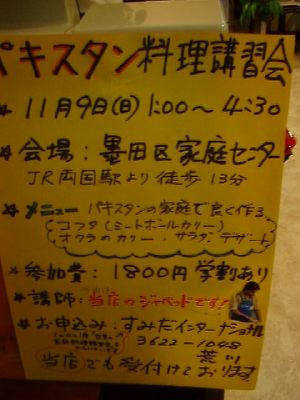 パキスタン料理講習会
★ 11月9日(日) 1:00〜4:30
★ 会場：墨田区家庭センター
JR両国駅より徒歩13分
★ メニュー パキスタンの家庭で良く作る
コフタ(ミートボールカリー)
オクラのカリー・サラダ・デザート
★ 参加費：1800円 学割あり
★ 講師：当店のジャベッドです！
★ お申込み：すみだインターナショナル
3622-1048
荒川
当店でも受付けております